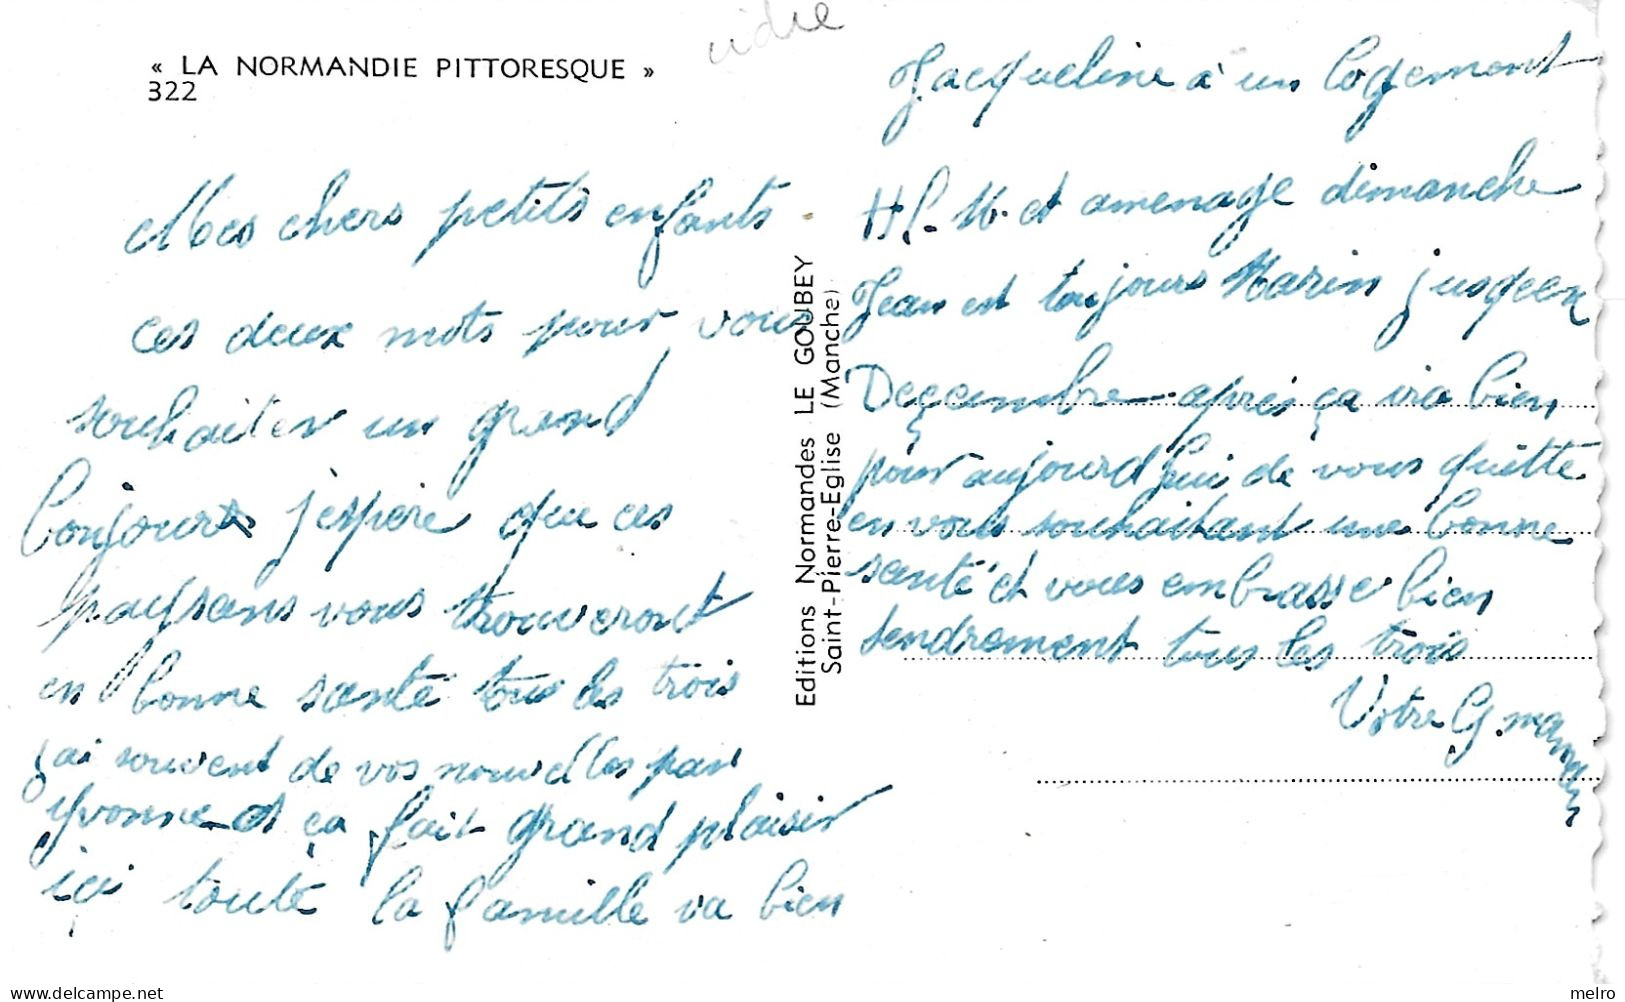 cidre
« LA NORMANDIE PITTORESQUE »
322
Mes chers petits enfants
ces deux mots pour vous
souhaiter un grand
bonjour j'espère que ces
paysans vous trouveront
en bonne santé tous les trois
j'ai souvent de vos nouvelles par
Yvonne et ça fait grand plaisir
içi toute la famille va bien
Editions Normandes LE GOUBEY
Saint-Pierre-Eglise (Manche)
Jacqueline à un logement
H.L.M. et amenage dimanche
Jean est toujours Marin jusqeux
Deçcembre après ça ira bien
pour aujourd hui de vous quitte
en vous souhaitant une bonne
santé et vous embrasse bien
tendrement tous les trois
Votre G. maman
delcampe.net
melro